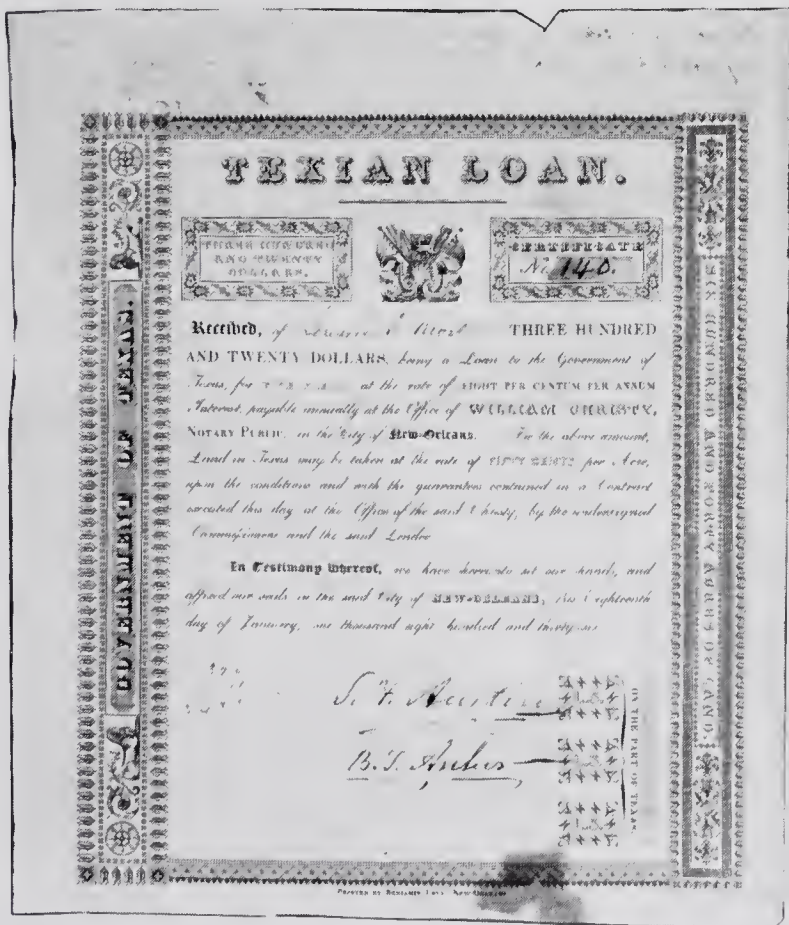 TEXIAN LOAN.
THREE HUNDRED
AND TWENTY
DOLLARS.
CERTIFICATE
No. 140.
Received, of THREE HUNDRED
AND TWENTY DOLLARS, being a Loan to the Government of
Texas, for at the rate of EIGHT PER CENTUM PER ANNUM
Interest, payable annually at the Office of WILLIAM CHRISTY,
NOTARY PUBLIC, in the City of New-Orleans. For the above amount,
Land in Texas may be taken at the rate of FIFTY CENTS per Acre,
upon the conditions and with the guarantees contained in a Contract
executed this day at the Office of the said Christy, by the undersigned
Commissioners and the said Lender
In Testimony whereof, we have hereunto set our hands, and
affixed our seals in the said City of NEW-ORLEANS, this Eighteenth
day of January, one thousand eight hundred and thirty-six
S. F. Austin
B. T. Archer
ON THE PART OF TEXAS.
GOVERNMENT OF TEXAS.
SIX HUNDRED AND FORTY ACRES OF LAND.
PRINTED BY BENJAMIN LEVY NEW-ORLEANS